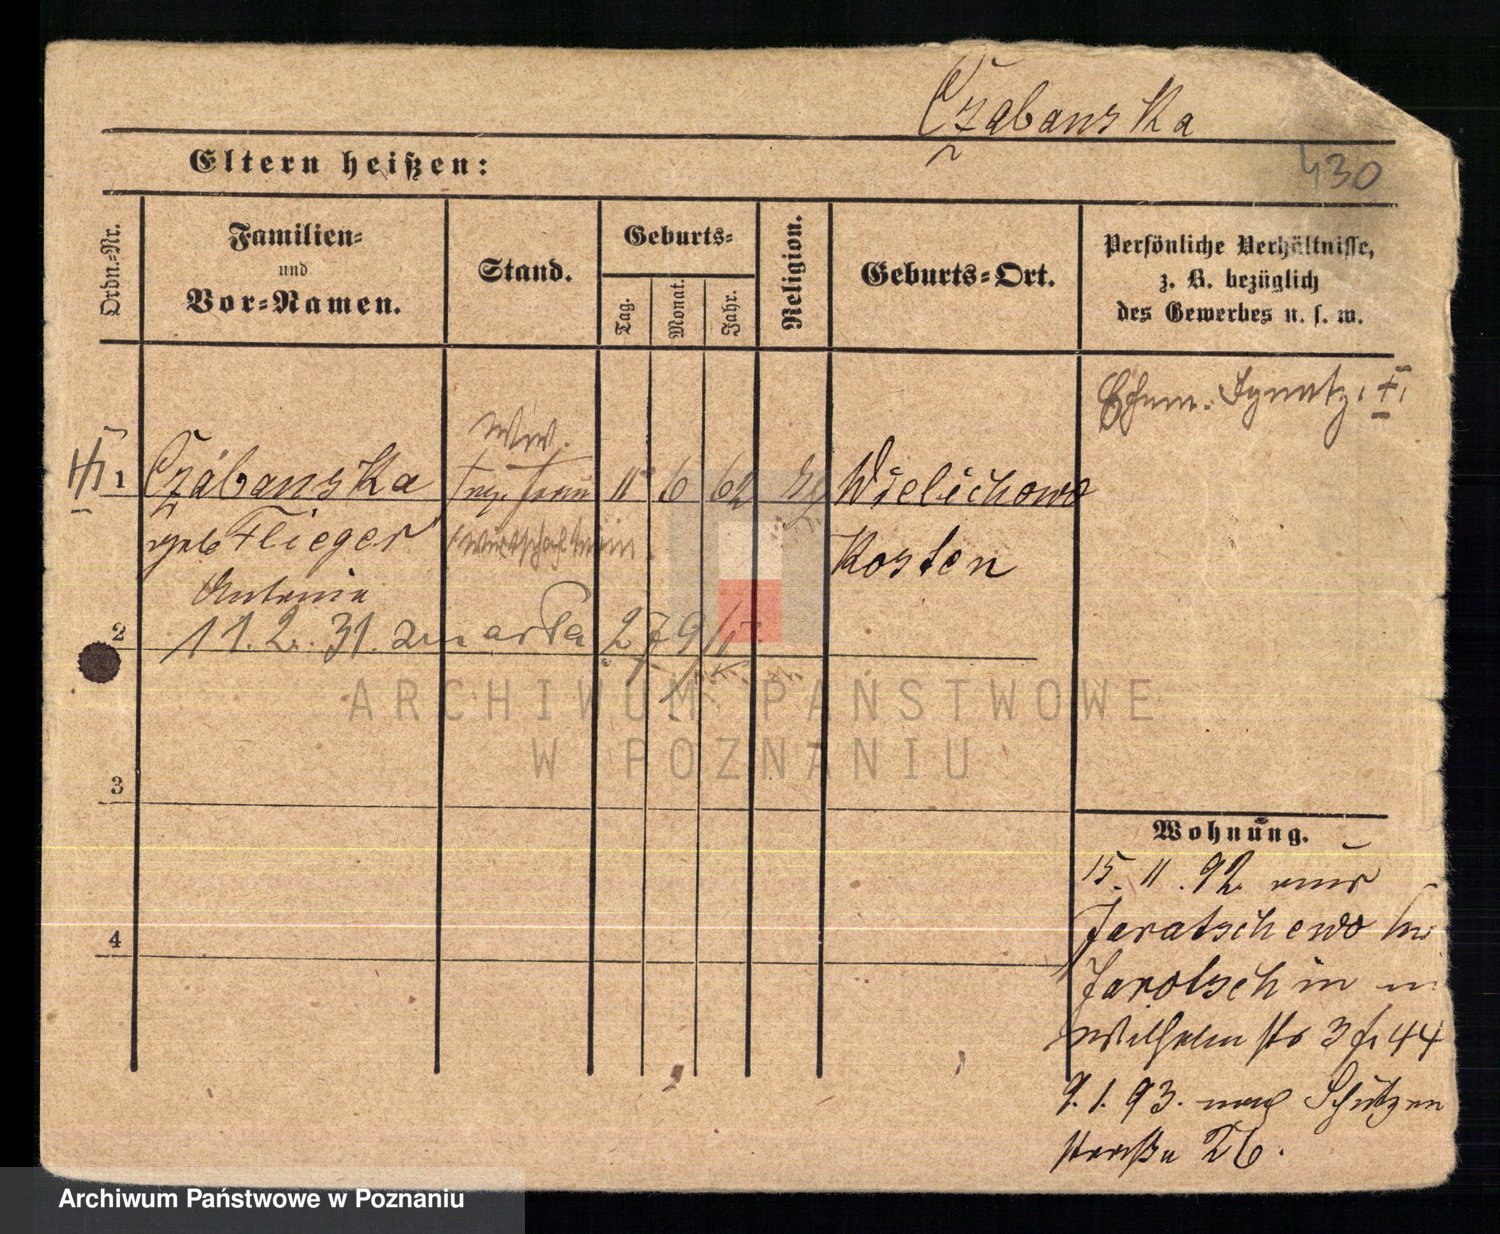 Czabanska
430
Eltern heißen:
Ordn.-Nr.
Familien-
und
Vor-Namen.
Stand.
Geburts-
Tag.
Monat.
Jahr.
Religion.
Geburts-Ort.
Persönliche Verhältnisse,
z. B. bezüglich
des Gewerbes u. s. w.
Ehem. Ignatz
Ww.
1 Czabanska 11 6 62 Wielichowo
geb Flieger
Kosten
Antonie
2 11. 2. 31. zmarła
3
4
Wohnung.
15. 11. 92. aus
Jaratschewo
Jarotschin
Wilhelm str 3 44
9. 1. 93. nach Schützen
straße 26.
ARCHIWUM PAŃSTWOWE
W POZNANIU
Archiwum Państwowe w Poznaniu